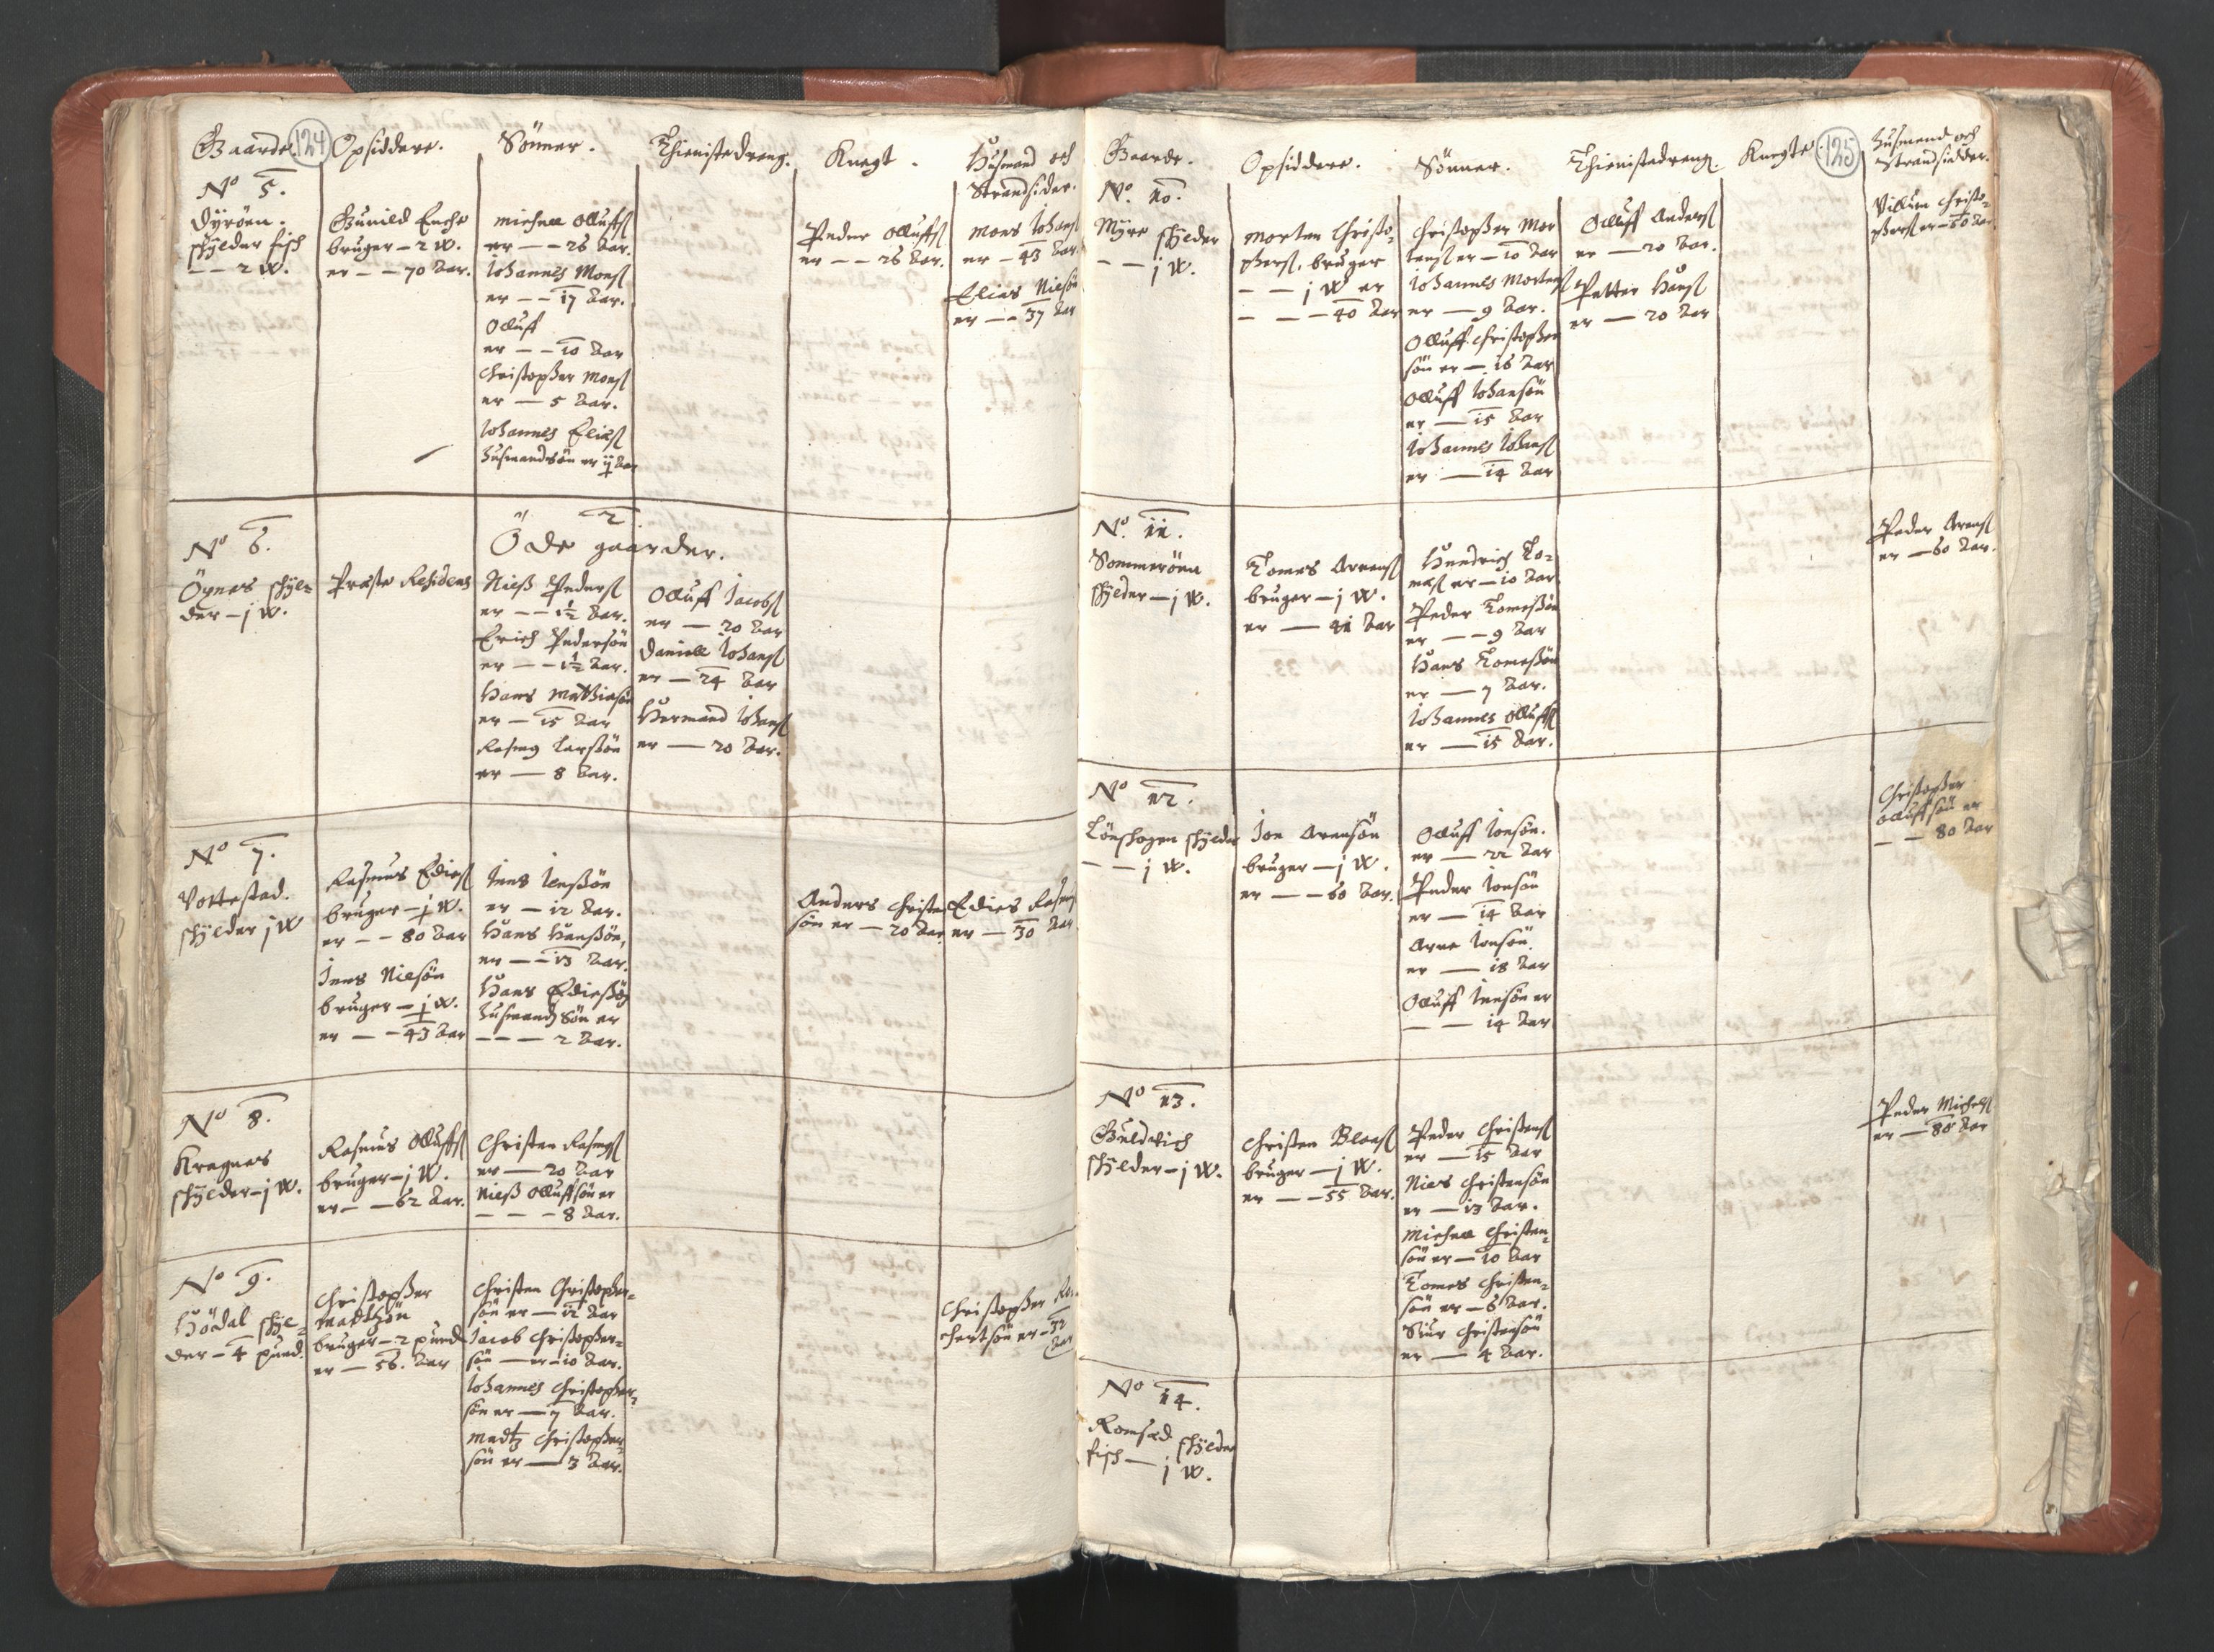 Gaarde.
124
Opsiddere.
Sönner.
Thienistedreng.
Knegt.
Husmand och
Strandsider.
No 5.
Dÿröen.
skÿlder fisch
— — 2 W.
Gunild Enche
bruger — 2 W.
er — — 70 Aar.
Michell Olluffs
er — — 26 Aar.
Iohannes Mons
er — — 17 Aar.
Olluff
er — — 10 Aar
Christopher Mons
er — 5 Aar.
Iohannes Elias
husmandsön er
Peder Olluffs
er — — 26 Aar.
Mons Iohans
er — 43 Aar
Elias Nielsön
er — — 37 Aar
2.
Öde gaarder.
No 6.
Öynes skÿl-
der — j W.
Præste Residens
Nielß Peders
er — — 1½ Aar.
Erich Pedersön
er — — 1½ Aar.
Hans Mathiasön
er — 15 Aar
Rasmus Larssön
er — 8 Aar.
Olluff Jacobs
er — 20 Aar
Daniell Iohans
er — 24 Aar
Hermand Iohans
er — 20 Aar.
No 7.
Vottestad.
skÿlder j W
Rasmus Edies
bruger — ½ W.
er — — 80 Aar
Jens Nielsön
bruger — ½ W.
er — — 43 Aar
Jens Jenssön
er — 12 Aar.
Hans Hanssön,
er — — 13 Aar.
Hans Ediessön
husmandz sön er
— — — 2 Aar.
Anders Christen
sön er — 20 Aar
Edies Rasmus
er — 30 Aar
No 8.
Kragnes
skÿlder — j W.
Rasmus Olluffs
bruger — j W.
er — — 62 Aar.
Christen Rasmuss
er — 20 Aar
Nielß Olluffsön er
— — — 8 Aar.
No 9.
Hödal skÿl-
der — 4 pund.
Christopher
Madtzön
bruger — 2 pund
er — 56. Aar
Christen Christopher-
sön er — 12 Aar
Jacob Christopher-
sön — er — 10 Aar.
Iohannes Christopher-
sön er — 7 Aar.
Madtz Christopher-
sön er — 3 Aar.
Christopher
chertsön er — 32
Aar
Gaarde.
Opsiddere.
Sönner.
Thienistedreng.
Knegte.
125
Husmend och
Strandsidder.
No. 10.
Mÿre skÿlder
— — j W.
Morten Christo-
phers. bruger
— — j W er
— — — 40 Aar
Christopher Mor
tens er — 10 Aar
Iohannes Mortens
er — 9 Aar.
Olluff Christopher
sön er — 16 Aar
Olluff Iohansön
er — 15 Aar
Iohannes Iohans
er — 14 Aar
Olluff Anders
er — 20 Aar.
Petter Hans
er — 20 Aar
Villum Christo-
phers er — 50 Aar
No. 11.
Sommeröen
skÿlder — j W.
Tomes Arens
bruger — j W.
er — 41 Aar
Hendrich To-
mes er — 10 Aar
Peder Tomessön
er — — 9 Aar
Hans Tomessön
er — 7 Aar.
Iohannes Olluffs
er — 15 Aar.
Peder Arens
er — 60 Aar.
No 12.
Lönskogen skÿlder
— — j W.
Jon Arensön
bruger — j W.
er — — 60 Aar.
Olluff Jonsön.
er — 22 Aar
Peder Jonsön
er — 14 Aar
Arne Jonsön.
er — 18 Aar
Olluff Jensön er
— — 14 Aar
Christopher
Olluffsön er
— — 80 Aar
No 13.
Guldvich
skÿlder — j W.
Christen Beens
bruger — j W.
er — — 55 Aar.
Peder Christens
er — 15 Aar
Niels Christensön
er — 13 Aar.
Michell Christen-
sön er — 10 Aar
Tomes Christen-
sön er — 6 Aar.
Siur Christensön
er — 4 Aar.
Peder Michels
er — 80 Aar
No 14.
Romsad skÿlder
fisch — j W.